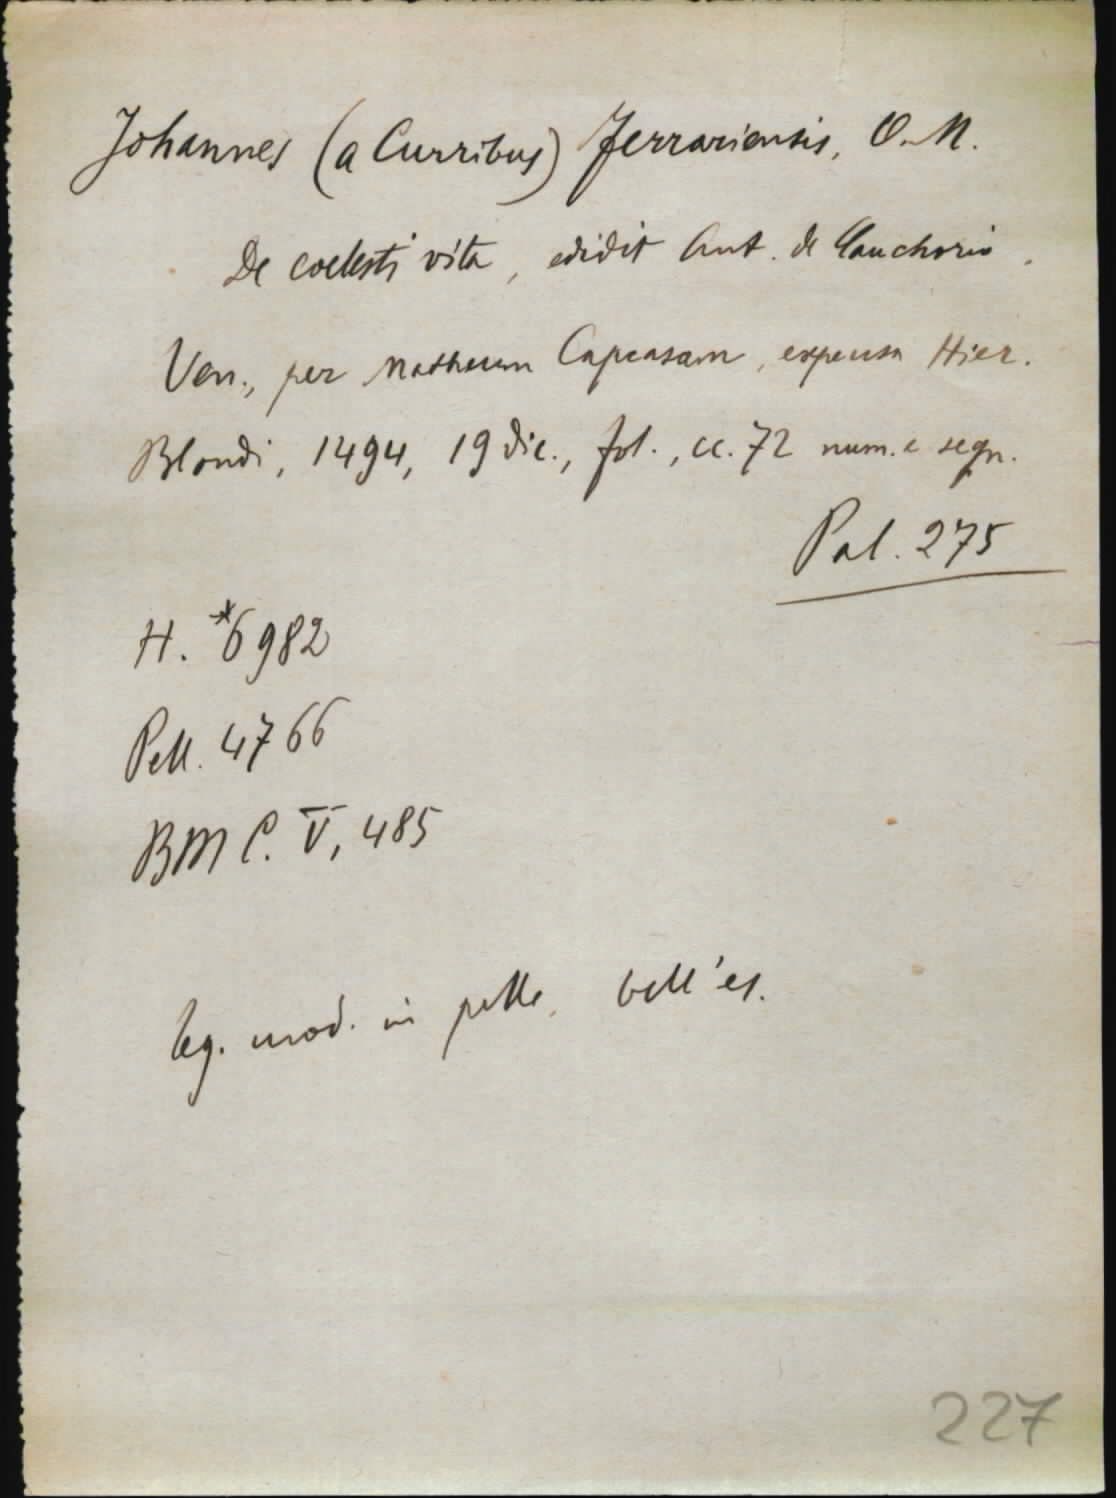 Johannes (a Curribus) Ferrariensis, O.M.
De coelesti vita, edidit Ant. de Cauchorio.
Ven., per Matheum Capcasam, expensa Hier.
Blondi, 1494, 19 dic., fol., cc. 72 num. e segn.
Pal. 275
H. *6982
Pell. 4766
BMC. V, 485
leg. mod. in pelle, bell'es.
227